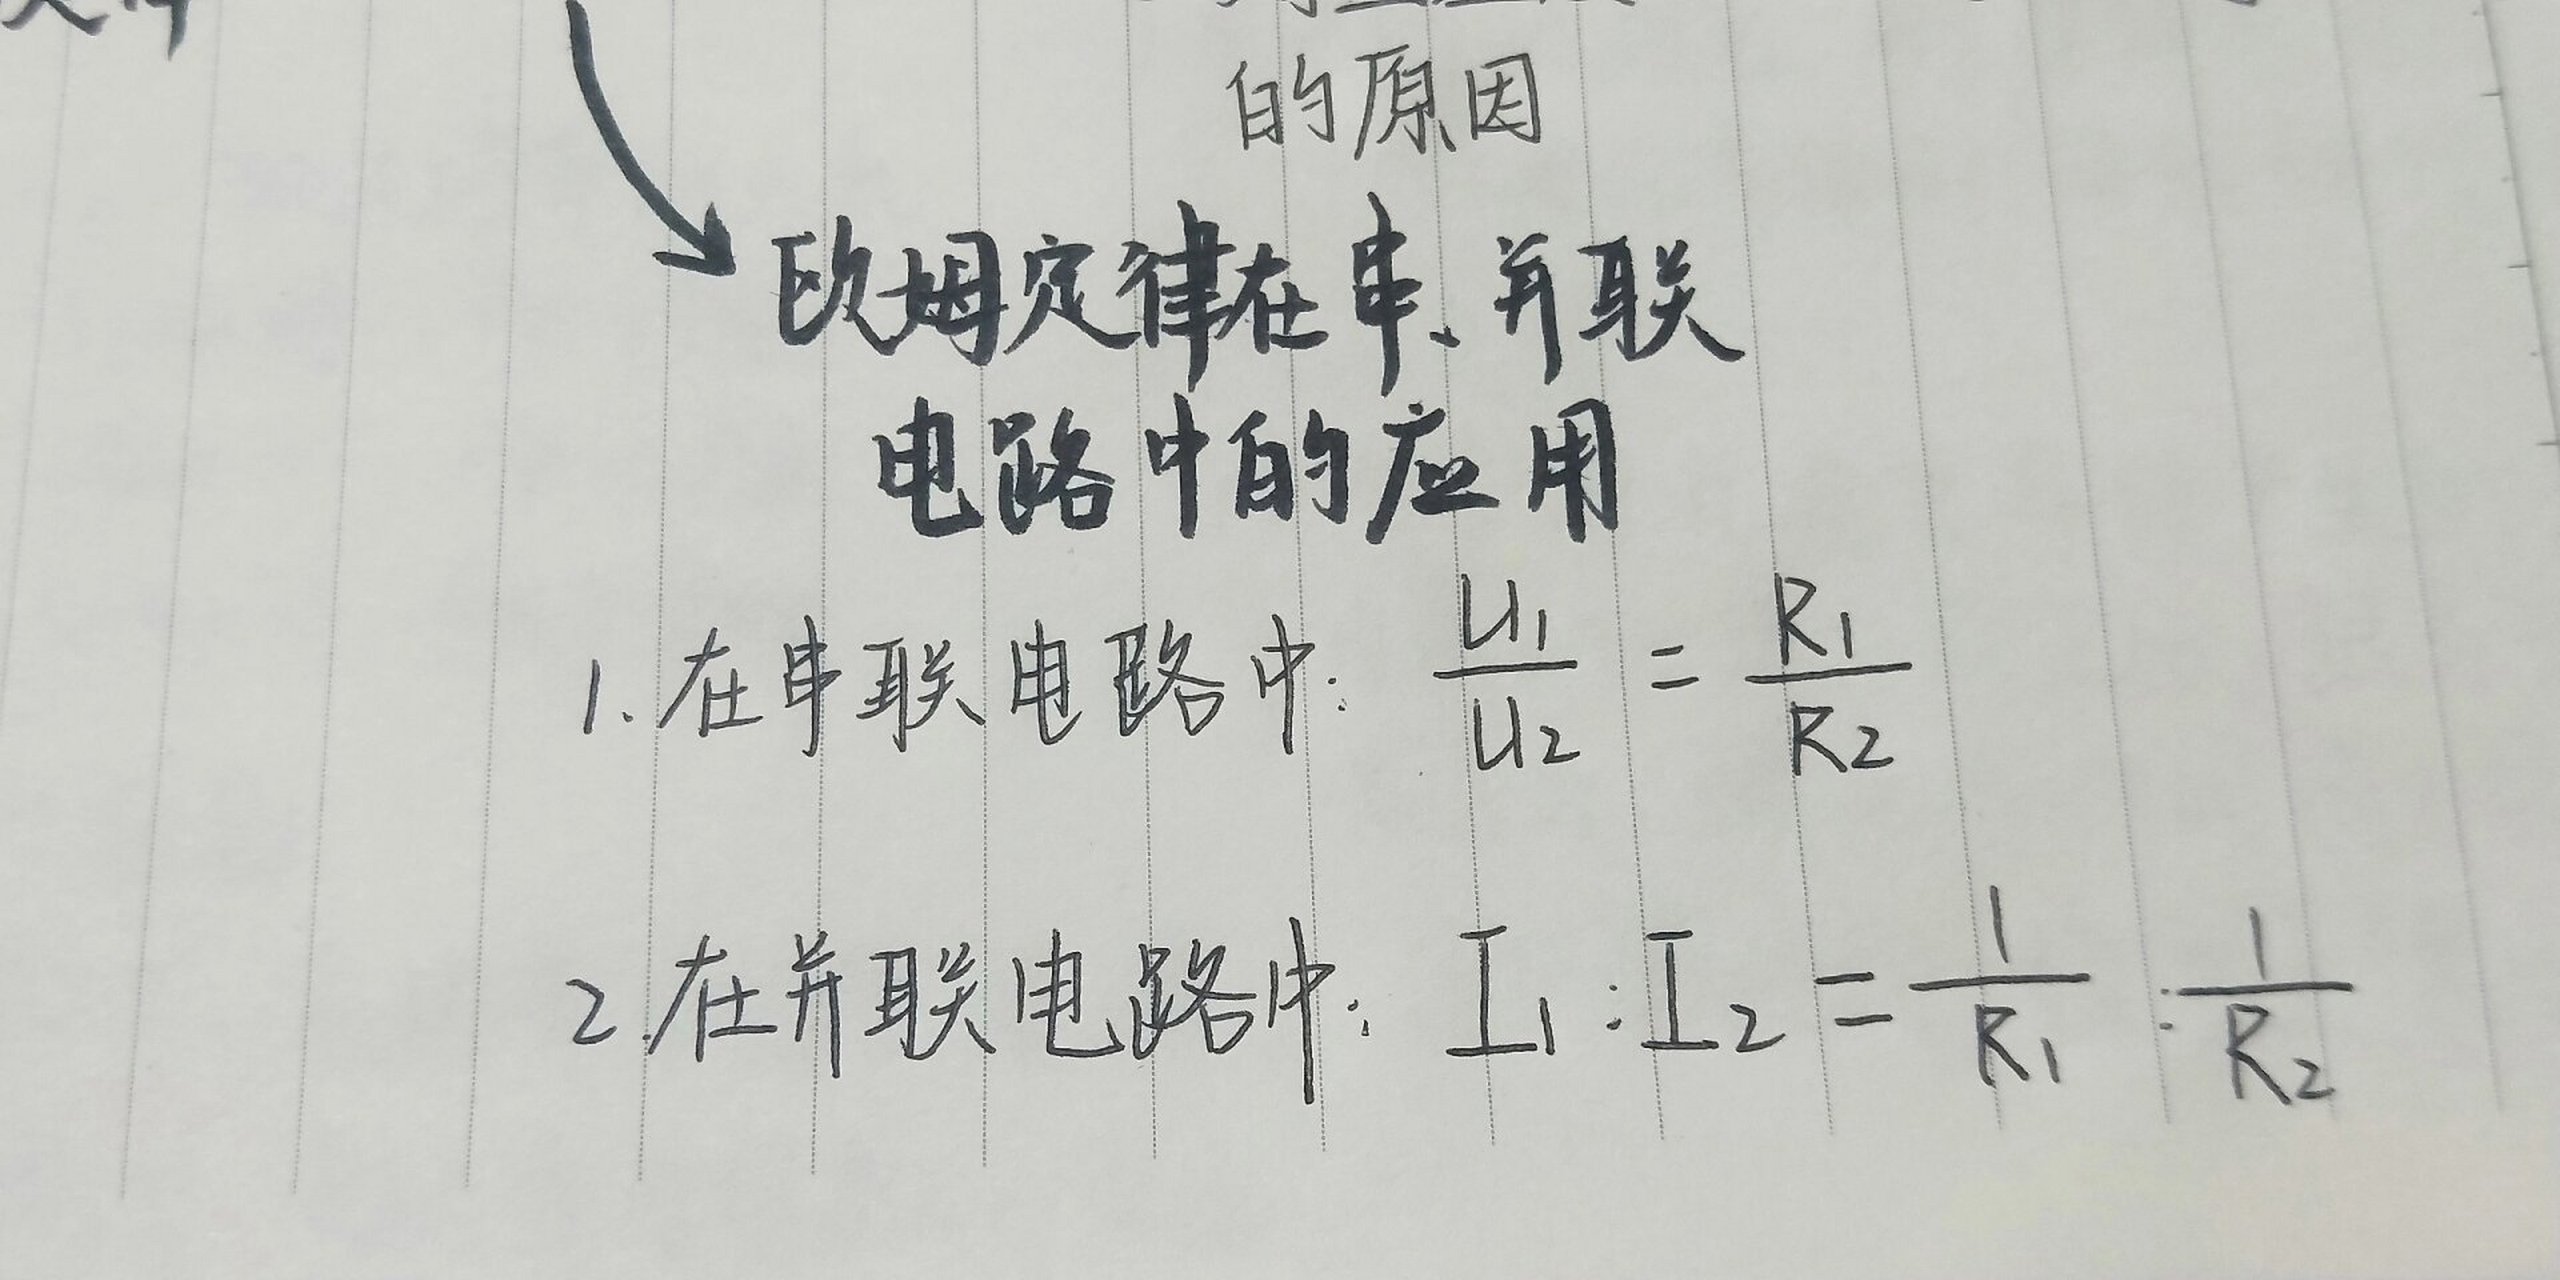 的原因
欧姆定律在串、并联
电路中的应用
1. 在串联电路中: U1/U2 = R1/R2
2. 在并联电路中: I1 : I2 = 1/R1 : 1/R2